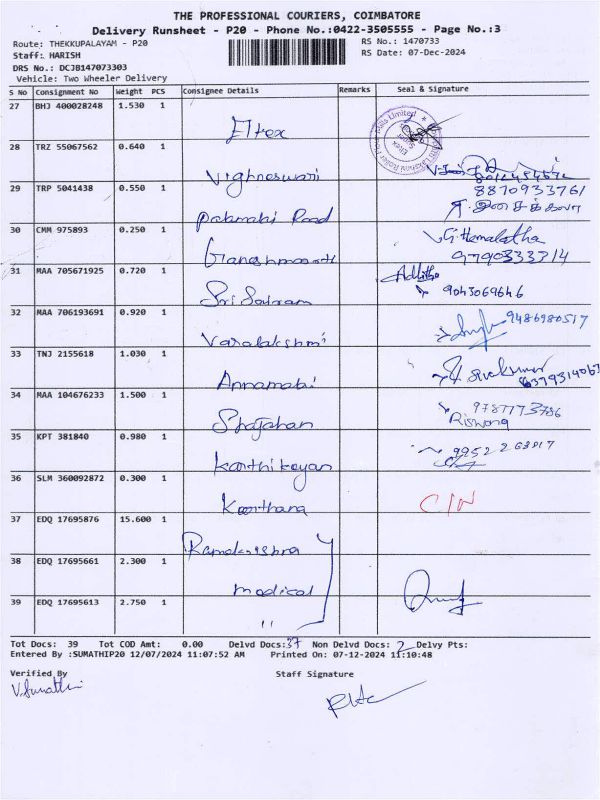 THE PROFESSIONAL COURIERS, COIMBATORE
Delivery Runsheet - P20 - Phone No.:0422-3505555 - Page No.:3
Route: THEKKUPALAYAM - P20
RS No.: 1470733
Staff: HARISH
RS Date: 07-Dec-2024
DRS No.: DCJB147073303
Vehicle: Two Wheeler Delivery
S No Consignment No Weight PCS Consignee Details Remarks Seal & Signature
27 BHJ 400028248 1.530 1 Eltex
28 TRZ 55067562 0.640 1 Vighneswari
29 TRP 5041438 0.550 1 8870933761
30 CMM 975893 0.250 1 G. Hemalatha
9790333314
31 MAA 705671925 0.720 1 Sri Sairam
9043069646
32 MAA 706193691 0.920 1 Varalakshmi 9486980517
33 TNJ 2155618 1.030 1 Sivakumar
6379314063
34 MAA 104676233 1.500 1 Shajahan 9787773786
35 KPT 381840 0.980 1 Karthikeyan
36 SLM 360092872 0.300 1 C/N
37 EDQ 17695876 15.600 1 Ramakrishna
38 EDQ 17695661 2.300 1 medical
39 EDQ 17695613 2.750 1 ,,
Tot Docs: 39 Tot COD Amt: 0.00 Delvd Docs: 37 Non Delvd Docs: 2 Delvy Pts:
Entered By :SUMATHIP20 12/07/2024 11:07:52 AM Printed On: 07-12-2024 11:10:48
Verified By Staff Signature
V. Sumathi